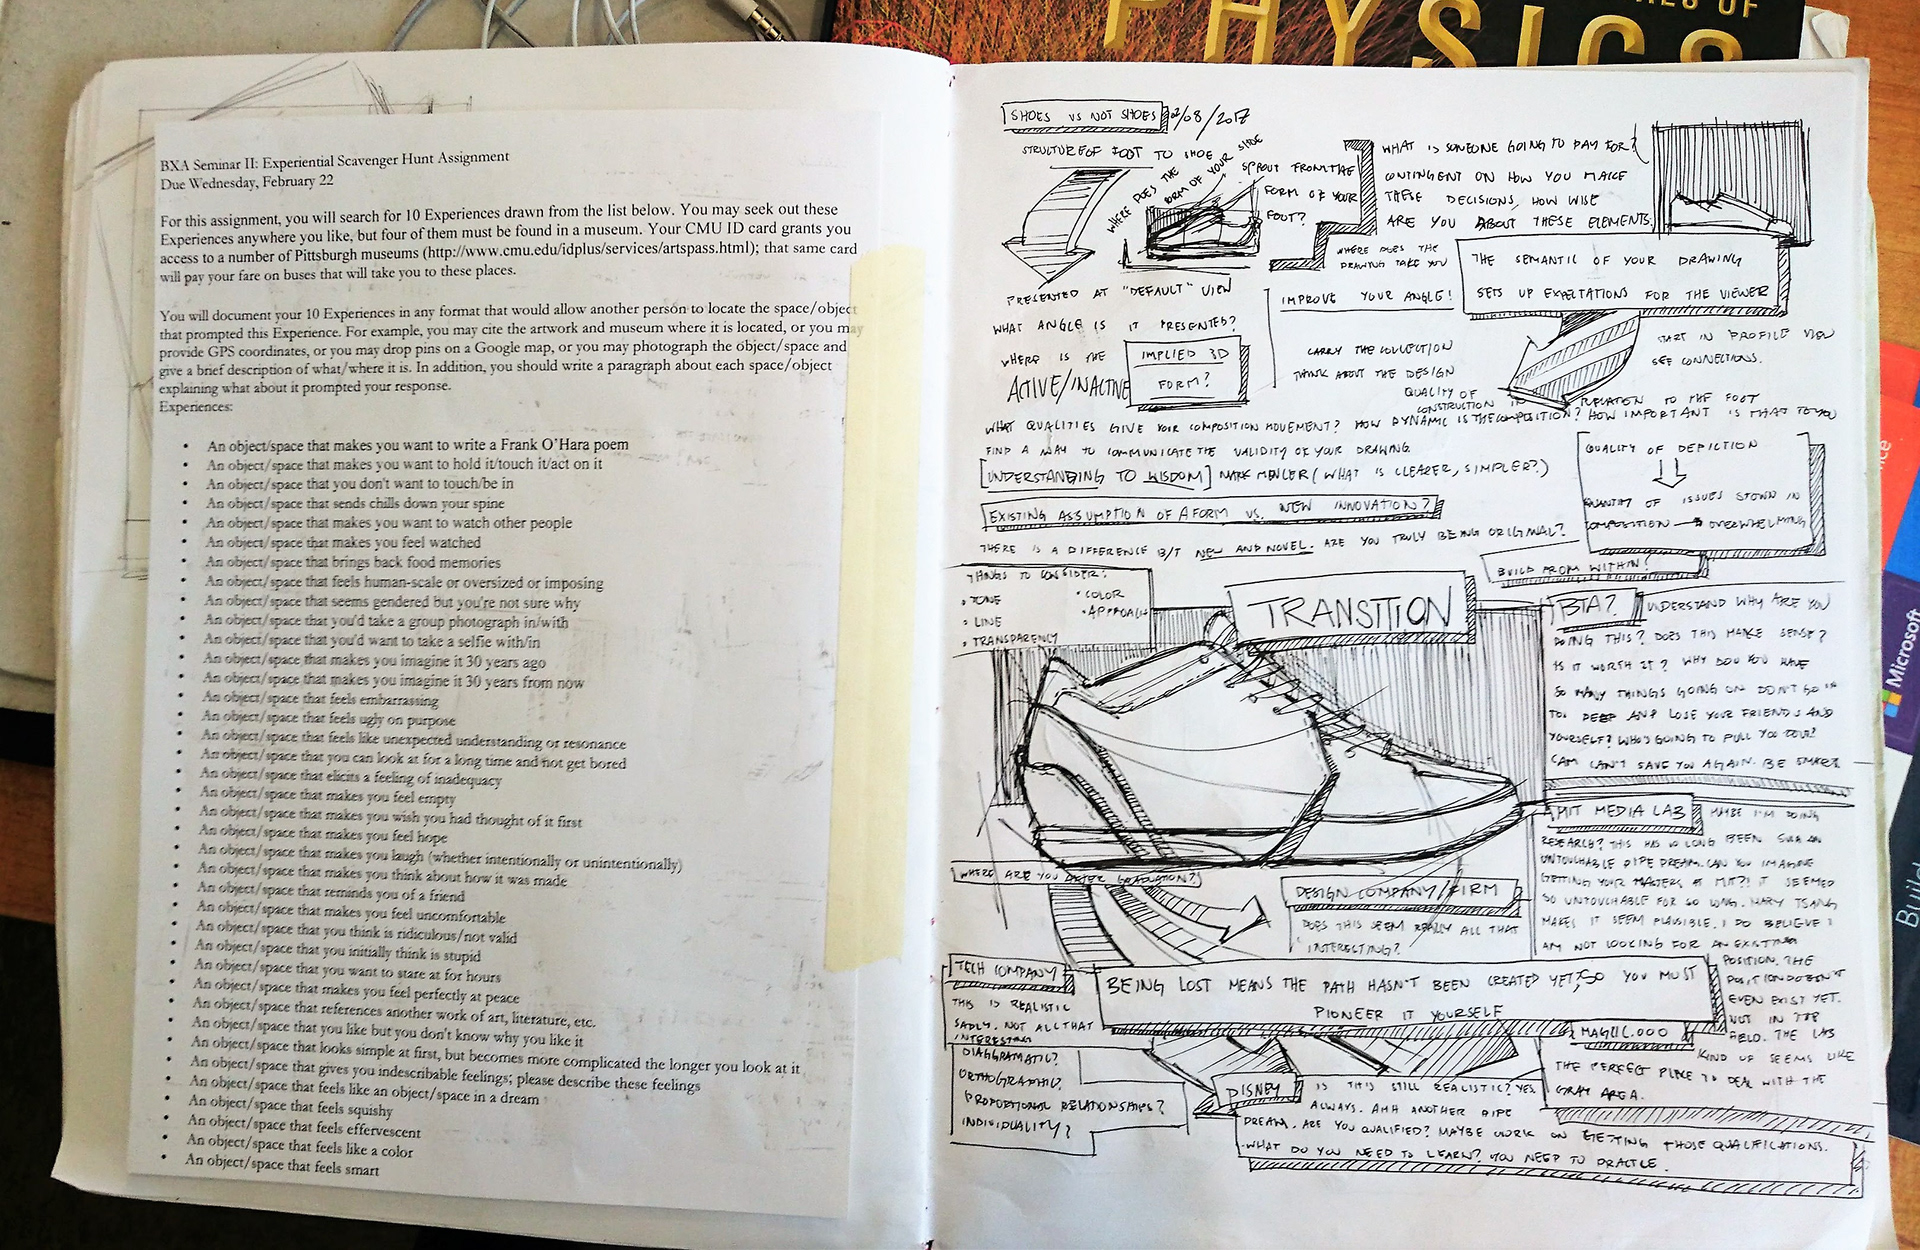 PHYSICS
BXA Seminar II: Experiential Scavenger Hunt Assignment
Due Wednesday, February 22
For this assignment, you will search for 10 Experiences drawn from the list below. You may seek out these
Experiences anywhere you like, but four of them must be found in a museum. Your CMU ID card grants you
access to a number of Pittsburgh museums (http://www.cmu.edu/idplus/services/artspass.html); that same card
will pay your fare on buses that will take you to these places.
You will document your 10 Experiences in any format that would allow another person to locate the space/object
that prompted this Experience. For example, you may cite the artwork and museum where it is located, or you may
provide GPS coordinates, or you may drop pins on a Google map, or you may photograph the object/space and
give a brief description of what/where it is. In addition, you should write a paragraph about each space/object
explaining what about it prompted your response.
Experiences:
• An object/space that makes you want to write a Frank O'Hara poem
• An object/space that makes you want to hold it/touch it/act on it
• An object/space that you don't want to touch/be in
• An object/space that sends chills down your spine
• An object/space that makes you want to watch other people
• An object/space that makes you feel watched
• An object/space that brings back food memories
• An object/space that feels human-scale or oversized or imposing
• An object/space that seems gendered but you're not sure why
• An object/space that you'd take a group photograph in/with
• An object/space that you'd want to take a selfie with/in
• An object/space that makes you imagine it 30 years ago
• An object/space that makes you imagine it 30 years from now
• An object/space that feels embarrassing
• An object/space that feels ugly on purpose
• An object/space that feels like unexpected understanding or resonance
• An object/space that you can look at for a long time and not get bored
• An object/space that elicits a feeling of inadequacy
• An object/space that makes you feel empty
• An object/space that makes you wish you had thought of it first
• An object/space that makes you feel hope
• An object/space that makes you laugh (whether intentionally or unintentionally)
• An object/space that makes you think about how it was made
• An object/space that reminds you of a friend
• An object/space that makes you feel uncomfortable
• An object/space that you think is ridiculous/not valid
• An object/space that you initially think is stupid
• An object/space that you want to stare at for hours
• An object/space that makes you feel perfectly at peace
• An object/space that references another work of art, literature, etc.
• An object/space that you like but you don't know why you like it
• An object/space that looks simple at first, but becomes more complicated the longer you look at it
• An object/space that gives you indescribable feelings; please describe these feelings
• An object/space that feels like an object/space in a dream
• An object/space that feels squishy
• An object/space that feels effervescent
• An object/space that feels like a color
• An object/space that feels smart
SHOES VS NOT SHOES 02/08/2017
STRUCTURE OF FOOT TO SHOE
WHERE DOES THE
FORM OF YOUR SHOE
SPROUT FROM THE
FORM OF YOUR
FOOT?
PRESENTED AT "DEFAULT" VIEW
WHAT ANGLE IS IT PRESENTED?
WHERE IS THE
ACTIVE/INACTIVE
IMPLIED 3D
FORM?
WHAT IS SOMEONE GOING TO PAY FOR?
CONTINGENT ON HOW YOU MAKE
THESE DECISIONS, HOW WISE
ARE YOU ABOUT THESE ELEMENTS.
WHERE DOES THE
DRAWING TAKE YOU
IMPROVE YOUR ANGLE!
THE SEMANTIC OF YOUR DRAWING
SETS UP EXPECTATIONS FOR THE VIEWER
START IN PROFILE VIEW
SEE CONNECTIONS.
CARRY THE COLLECTION
THINK ABOUT THE DESIGN
QUALITY OF
CONSTRUCTION IN RELATION TO THE FOOT
WHAT QUALITIES GIVE YOUR COMPOSITION MOVEMENT? HOW DYNAMIC IS THE COMPOSITION? HOW IMPORTANT IS THAT TO YOU
FIND A WAY TO COMMUNICATE THE VALIDITY OF YOUR DRAWING.
[UNDERSTANDING TO WISDOM] MARK (WHAT IS CLEARER, SIMPLER?)
QUALITY OF DEPICTION
QUANTITY OF ISSUES SHOWN IN
COMPOSITION → OVERWHELMING
EXISTING ASSUMPTION OF A FORM VS. NEW INNOVATION?
THERE IS A DIFFERENCE B/T NEW AND NOVEL. ARE YOU TRULY BEING ORIGINAL?
BUILD FROM WITHIN?
THINGS TO CONSIDER:
• TONE
• LINE
• TRANSPARENCY
• COLOR
• APPROACH
TRANSITION
BTA? UNDERSTAND WHY ARE YOU
DOING THIS? DOES THIS MAKE SENSE?
IS IT WORTH IT? WHY DO YOU HAVE
SO MANY THINGS GOING ON DON'T GO IN
TOO DEEP AND LOSE YOUR FRIENDS AND
YOURSELF? WHO'S GOING TO PULL YOU OUT?
CAM CAN'T SAVE YOU AGAIN. BE SMART.
MIT MEDIA LAB MAYBE I'M DOING
RESEARCH? THIS HAS SO LONG BEEN SUCH AN
UNTOUCHABLE PIPE DREAM. CAN YOU IMAGINE
GETTING YOUR MASTERS AT MIT?! IT SEEMED
SO UNTOUCHABLE FOR SO LONG. MARY TSANG
MAKES IT SEEM PLAUSIBLE. I DO BELIEVE I
AM NOT LOOKING FOR AN EXISTING
POSITION. THE
POSITION DOESN'T
EVEN EXIST YET.
NOT IN
FIELD. THE LAB
KIND OF SEEMS LIKE
THE PERFECT PLACE TO DEAL WITH THE
GRAY AREA.
WHERE ARE YOU AFTER GRADUATION?
DESIGN COMPANY/FIRM
DOES THIS SEEM REALLY ALL THAT
INTERESTING?
TECH COMPANY
THIS IS REALISTIC
SADLY. NOT ALL THAT
INTERESTING
BEING LOST MEANS THE PATH HASN'T BEEN CREATED YET, SO YOU MUST
PIONEER IT YOURSELF
DIAGGRAMATIC?
ORTHOGRAPHIC.
PROPORTIONAL RELATIONSHIPS?
INDIVIDUALITY?
DISNEY IS THIS STILL REALISTIC? YES.
ALWAYS. AHH ANOTHER PIPE
DREAM. ARE YOU QUALIFIED? MAYBE WORK ON GETTING THOSE QUALIFICATIONS.
WHAT DO YOU NEED TO LEARN? YOU NEED TO PRACTICE.
Microsoft
Build